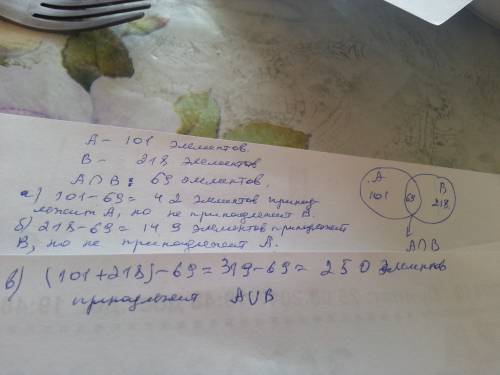 A – 101 элементов.
B – 218 элементов
A∩B: 69 элементов.
а) 101-69=42 элементов принад-
лежит A, но не принадлежит B.
б) 218-69=149 элементов принадлежит
B, но не принадлежит A.
в) (101+218)-69=319-69=250 элементов
принадлежит A∪B
A
101
69
B
218
A∩B